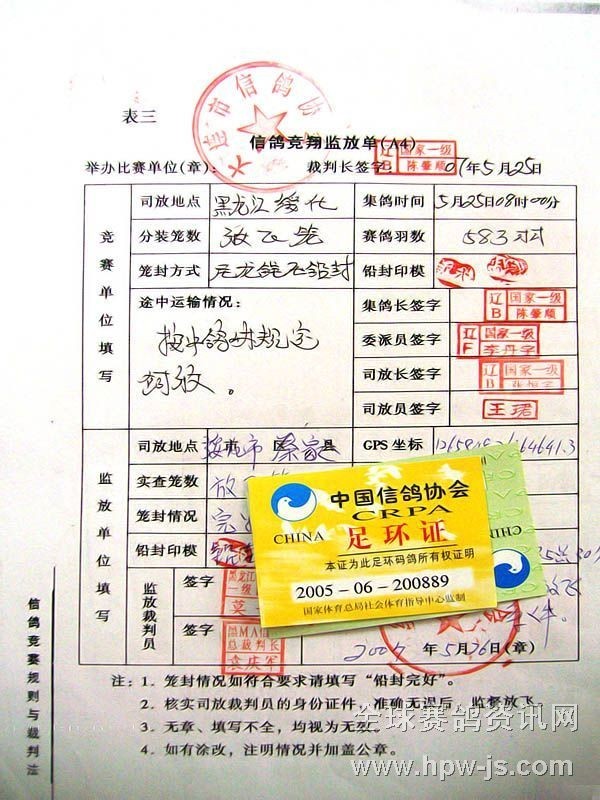 大连市信鸽协
表三
信鸽竞翔监放单(A4)
举办比赛单位(章): 裁判长签字: 辽B 国家一级 陈肇顺 07年5月25日
竞赛单位填写
司放地点 黑龙江绥化 集鸽时间 5月25日08时00分
分装笼数 放飞笼 赛鸽羽数 583羽
笼封方式 铅封 铅封印模
途中运输情况: 按中鸽协规定
集鸽长签字 辽B 国家一级 陈肇顺
委派员签字 辽F 国家一级 李丹宇
司放长签字 辽B 国家一级
司放员签字 王珺
监放单位填写
司放地点 市 区 县 GPS坐标
实查笼数 放
笼封情况 完
铅封印模
监放裁判员
签字 黑龙江 一级 莫
签字 黑MA 总裁判长 袁庆军
2007年5月26日(章)
中国信鸽协会
CRPA
CHINA 足环证
本证为此足环码鸽所有权证明
2005-06-200889
国家体育总局社会体育指导中心监制
CHINA
注: 1. 笼封情况如符合要求请填写“铅封完好”。
2. 核实司放裁判员的身份证件,准确无误后,监督放飞。
3. 无章、填写不全,均视为无效。
4. 如有涂改,注明情况并加盖公章。
信鸽竞赛规则与裁判法
全球赛鸽资讯网
www.hpw-js.com